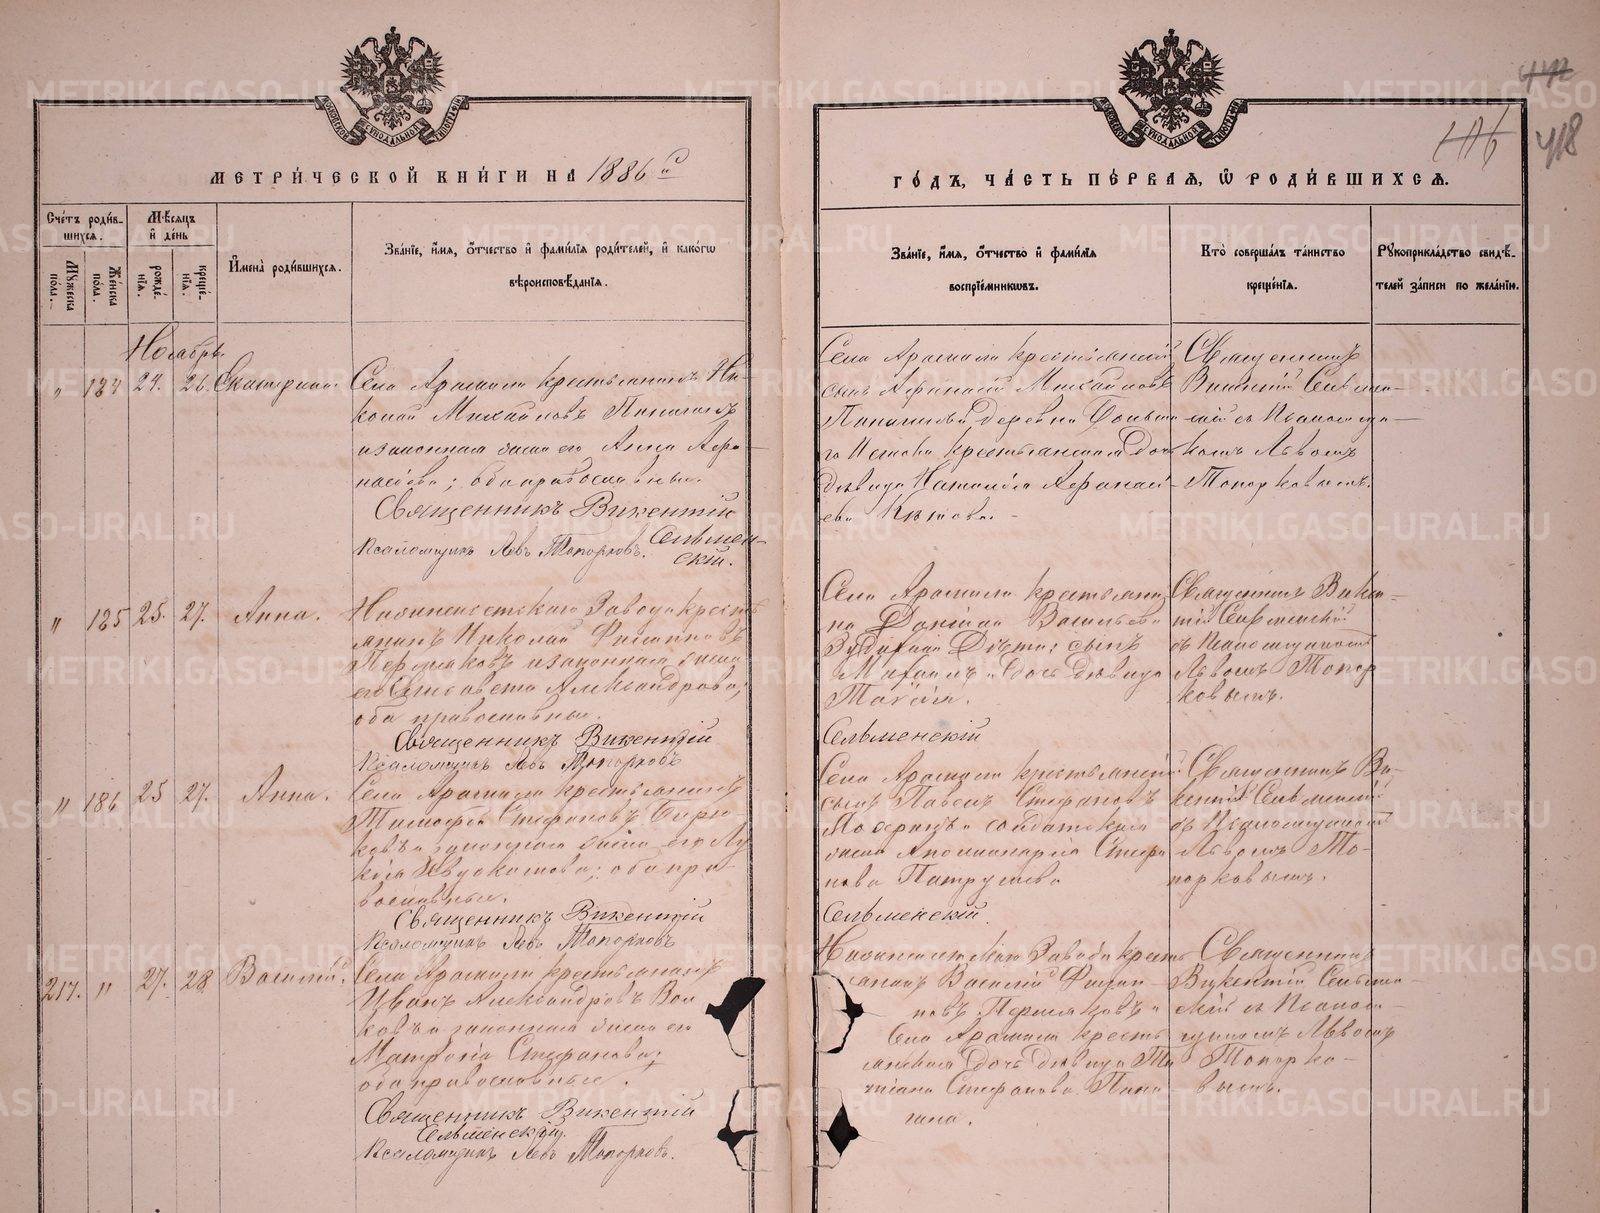 МЕТРИ́ЧЕСКОЙ КНИ́ГИ НА 1886й
ГО́ДЪ, ЧА́СТЬ ПЕ́РВАЯ, Ѡ РОДИ́ВШИХСЯ.
418
Сче́тъ роди́в-
шихся.
Му́жеска
по́ла.
Же́нска
по́ла.
Мѣ́сяцъ
и҆ де́нь
рожде́-
нїя.
креще́-
нїя.
И҆мена̀ роди́вшихся.
Зва́нїе, и҆́мя, ѻ҆́тчество и҆ фами́лїя роди́телей, и҆ како́гѡ
вѣроисповѣ́данїя.
Зва́нїе, и҆́мя, ѻ҆́тчество и҆ фами́лїя
воспрїе́мникѡвъ.
Кто̀ соверша́лъ та́инство
креще́нїя.
Рꙋкоприкла́дство свидѣ́-
телей за́писи по жела́нїю.
Ноябрь.
" 184 24. 26. Екатерина.
Села Арамили крестьянинъ Ни-
колай Михайловъ
и законная жена его Анна Афа-
насьева; оба православные.
Священникъ Викентій
Сельмен-
скій.
Псаломщикъ Левъ Топорковъ.
Села Арамили крестьянскій
сынъ Афанасій Михайловъ
деревни
крестьянская дочь
дѣвица Наталія Афанась-
ева
Священникъ
Викентій Сельмен-
скій съ Псаломщи-
комъ Львомъ
Топорковымъ.
" 185 25. 27. Анна.
Нижнеисетскаго Завода кресть-
янинъ Николай Филипповъ
Пермяковъ и законная жена
его Елисавета Александрова;
оба православные.
Священникъ Викентій
Псаломщикъ Левъ Топорковъ
Села Арамили крестьяни-
на Васильева
дѣти: сынъ
и дочь дѣвица
Таисія.
Сельменскій
Священникъ Викен-
тій Сельменскій
съ Псаломщикомъ
Львомъ Топор-
ковымъ.
" 186 25 27. Анна.
Села Арамили крестьянинъ
Тимофей Стефановъ
и законная жена его Лу-
кія Евдокимова; оба пра-
вославные.
Священникъ Викентій
Псаломщикъ Левъ Топорковъ
Села Арамили крестьянскій
сынъ Павелъ Стефановъ
и солдатская
жена Аполлинарія Стефа-
нова Патрушева
Сельменскій.
Священникъ Ви-
кентій Сельменскій
съ Псаломщикомъ
Львомъ То-
порковымъ.
217. " 27. 28 Василій.
Села Арамили крестьянинъ
Иванъ Александровъ Вол-
ковъ и законная жена его
Матрона Стефанова;
оба православные.
Священникъ Викентій
Сельменскій.
Псаломщикъ Левъ Топорковъ.
Нижнеисетскаго Завода кресть-
янинъ Василій Филип-
повъ Пермяковъ и
Села Арамили кресть-
янская дочь дѣвица Та-
тіана Стефанова
Священникъ
Викентій Сельмен-
скій съ Псалом-
щикомъ Львомъ
Топорко-
вымъ.
METRIKI.GASO-URAL.RU